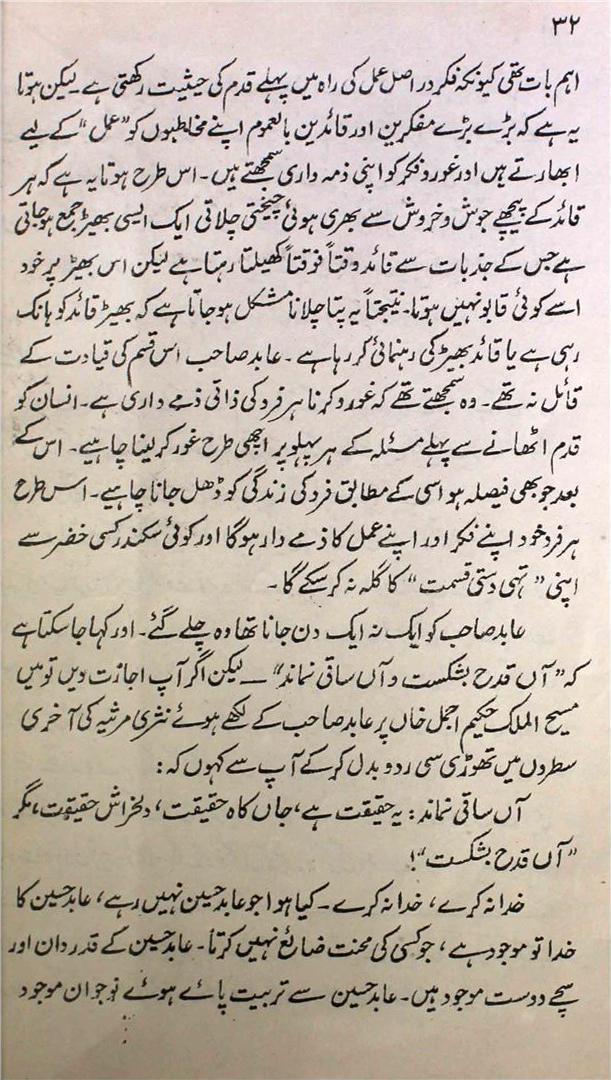 ۳۲
اہم بات تھی کیونکہ فکر در اصل عمل کی راہ میں پہلے قدم کی حیثیت رکھتی ہے ـ لیکن ہوتا
یہ ہے کہ بڑے بڑے مفکرین اور قائدین بالعموم اپنے مخاطبوں کو "عمل" کے لیے
ابھارتے ہیں اور غور و فکر کو اپنی ذمہ داری سمجھتے ہیں۔ اس طرح ہوتا یہ ہے کہ ہر
قائد کے پیچھے جوش و خروش سے بھری ہوئی چیختی چلاتی ایک ایسی بھیڑ جمع ہو جاتی
ہے جس کے جذبات سے قائد وقتاً فوقتاً کھیلتا رہتا ہے لیکن اس بھیڑ پر خود
اسے کوئی قابو نہیں ہوتا۔ نتیجتاً یہ پتا چلانا مشکل ہو جاتا ہے کہ بھیڑ قائد کو ہانک
رہی ہے یا قائد بھیڑ کی رہنمائی کر رہا ہے ۔ عابد صاحب اس قسم کی قیادت کے
قائل نہ تھے۔ وہ سمجھتے تھے کہ غور و کرنا ہر فرد کی ذاتی ذمے داری ہے۔ انسان کو
قدم اٹھانے سے پہلے مسئلہ کے ہر پہلو پر اچھی طرح غور کر لینا چاہیے ۔ اس کے
بعد جو بھی فیصلہ ہو اسی کے مطابق فرد کی زندگی کو ڈھل جانا چاہیے۔ اس طرح
ہر فرد خود اپنے فکر اور اپنے عمل کا ذمے دار ہو گا اور کوئی سکندر کسی خضر سے
اپنی "تہی دستی قسمت" کا گلہ نہ کر سکے گا ۔
عابد صاحب کو ایک نہ ایک دن جانا تھا وہ چلے گئے۔ اور کہا جا سکتا ہے
کہ "آں قدح بشکست و آں ساقی نماند" ـ لیکن اگر آپ اجازت دیں تو میں
مسیح الملک حکیم اجمل خاں پر عابد صاحب کے لکھے ہوئے نثری مرثیہ کی آخری
سطروں میں تھوڑی سی رد و بدل کر کے آپ سے کہوں کہ :
آں ساقی نماند : یہ حقیقت ہے، جاں کاہ حقیقت، دلخراش حقیقت، مگر
"آں قدح بشکست"!
خدا نہ کرے، خدا نہ کرے ۔ کیا ہوا جو عابد حسین نہیں رہے، عابد حسین کا
خدا تو موجود ہے، جو کسی کی محنت ضائع نہیں کرتا۔ عابد حسین کے قدر دان اور
سچے دوست موجود ہیں۔ عابد حسین سے تربیت پائے ہوئے نوجوان موجود